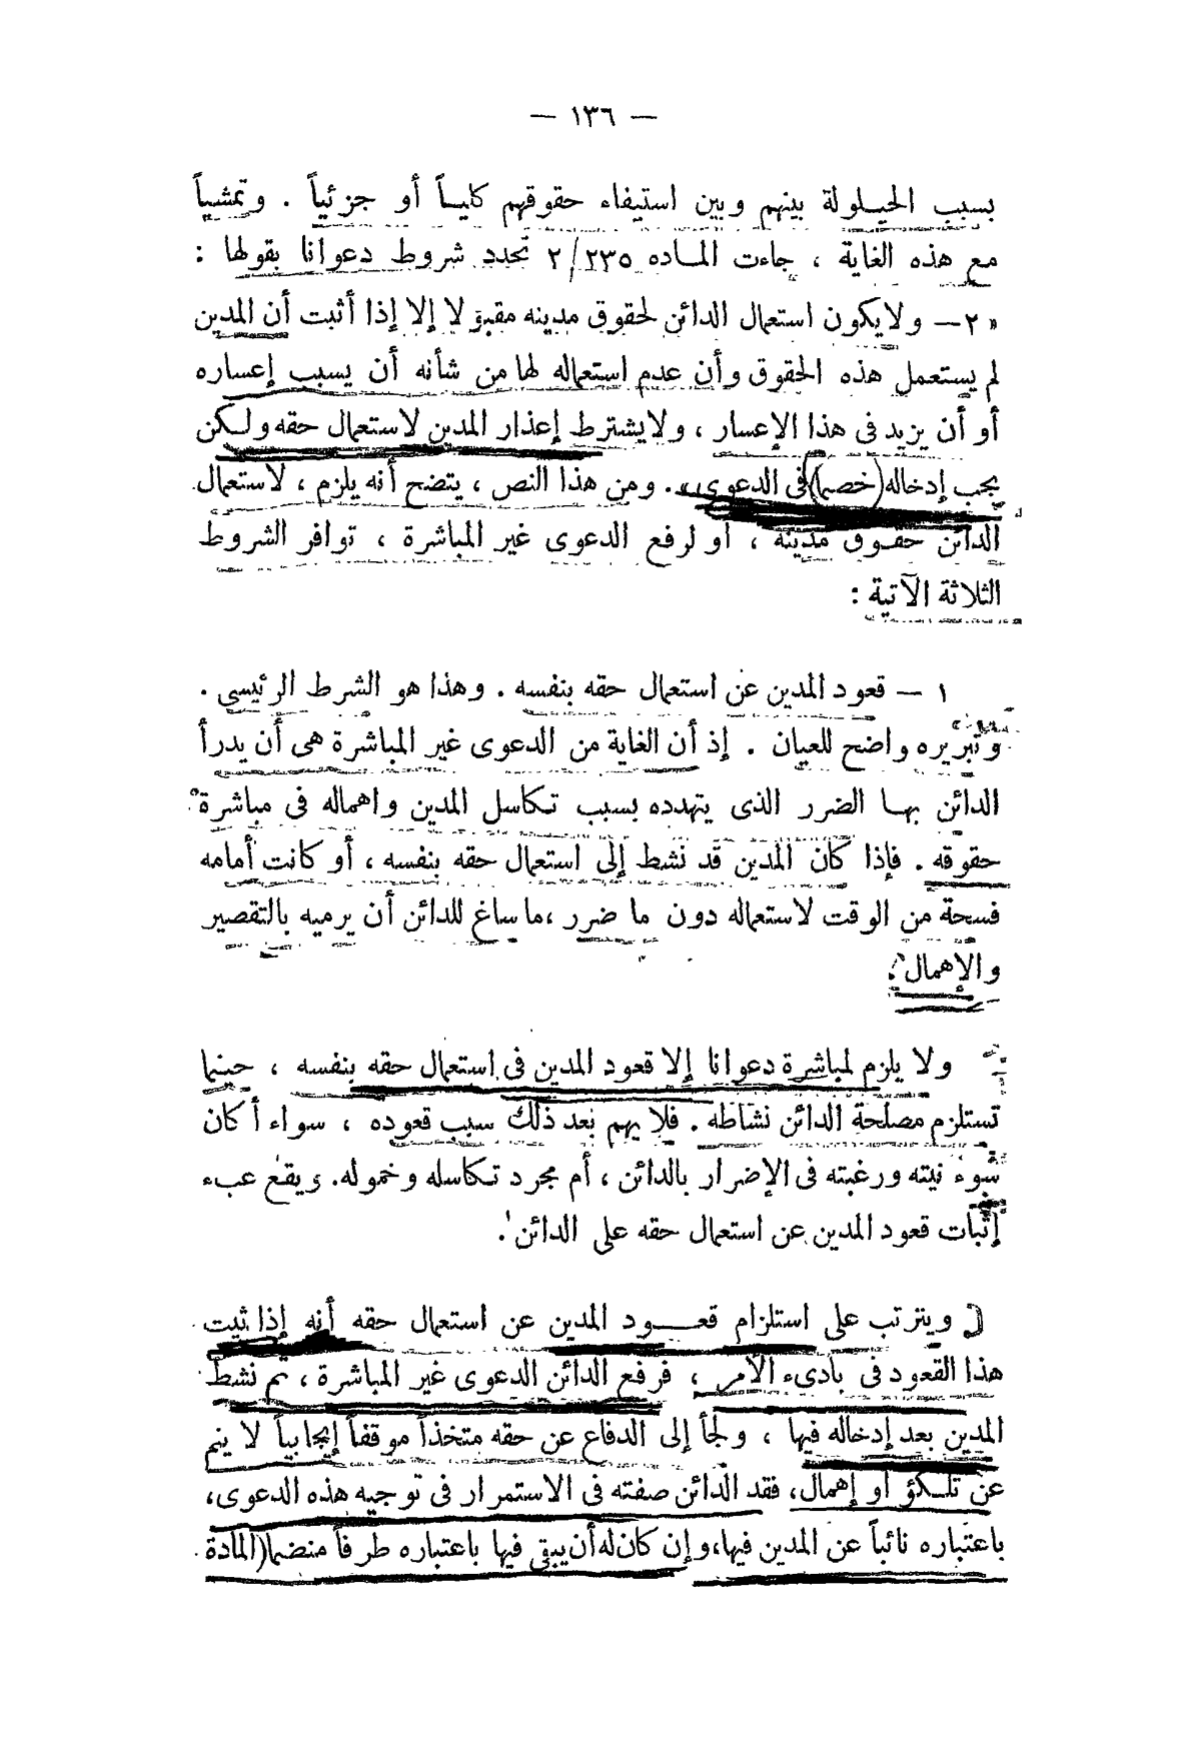 — ١٣٦ —
بسبب الحيلولة بينهم وبين استيفاء حقوقهم كلياً أو جزئياً . وتمشياً
مع هذه الغاية ، جاءت المادة ٢/٢٣٥ تحدد شروط دعوانا بقولها :
« ٢ — ولا يكون استعمال الدائن لحقوق مدينه مقبولا إلا إذا أثبت أن المدين
لم يستعمل هذه الحقوق وأن عدم استعماله لها من شأنه أن يسبب إعساره
أو أن يزيد فى هذا الإعسار ، ولا يشترط إعذار المدين لاستعمال حقه ولكن
يجب إدخاله (خصما) فى الدعوى » . ومن هذا النص ، يتضح أنه يلزم ، لاستعمال
الدائن حقوق مدينه ، أو لرفع الدعوى غير المباشرة ، توافر الشروط
الثلاثة الآتية :
١ — قعود المدين عن استعمال حقه بنفسه . وهذا هو الشرط الرئيسى .
وتبريره واضح للعيان . إذ أن الغاية من الدعوى غير المباشرة هى أن يدرأ
الدائن بها الضرر الذى يتهدده بسبب تكاسل المدين واهماله فى مباشرة
حقوقه . فإذا كان المدين قد نشط إلى استعمال حقه بنفسه ، أو كانت أمامه
فسحة من الوقت لاستعماله دون ما ضرر ، ما ساغ للدائن أن يرميه بالتقصير
والإهمال .
ولا يلزم لمباشرة دعوانا إلا قعود المدين فى استعمال حقه بنفسه ، حينما
تستلزم مصلحة الدائن نشاطه . فلا يهم بعد ذلك سبب قعوده ، سواء أكان
سوء نيته ورغبته فى الإضرار بالدائن ، أم مجرد تكاسله وخموله. ويقع عبء
إثبات قعود المدين عن استعمال حقه على الدائن ١ .
ويترتب على استلزام قعود المدين عن استعمال حقه أنه إذا ثبت
هذا القعود فى بادىء الأمر ، فرفع الدائن الدعوى غير المباشرة ، ثم نشط
المدين بعد إدخاله فيها ، ولجأ إلى الدفاع عن حقه متخذاً موقفاً إيجابياً لا ينم
عن تلكؤ أو إهمال، فقد الدائن صفته فى الاستمرار فى توجيه هذه الدعوى،
باعتباره نائباً عن المدين فيها، وإن كان له أن يبقى فيها باعتباره طرفاً منضما (المادة